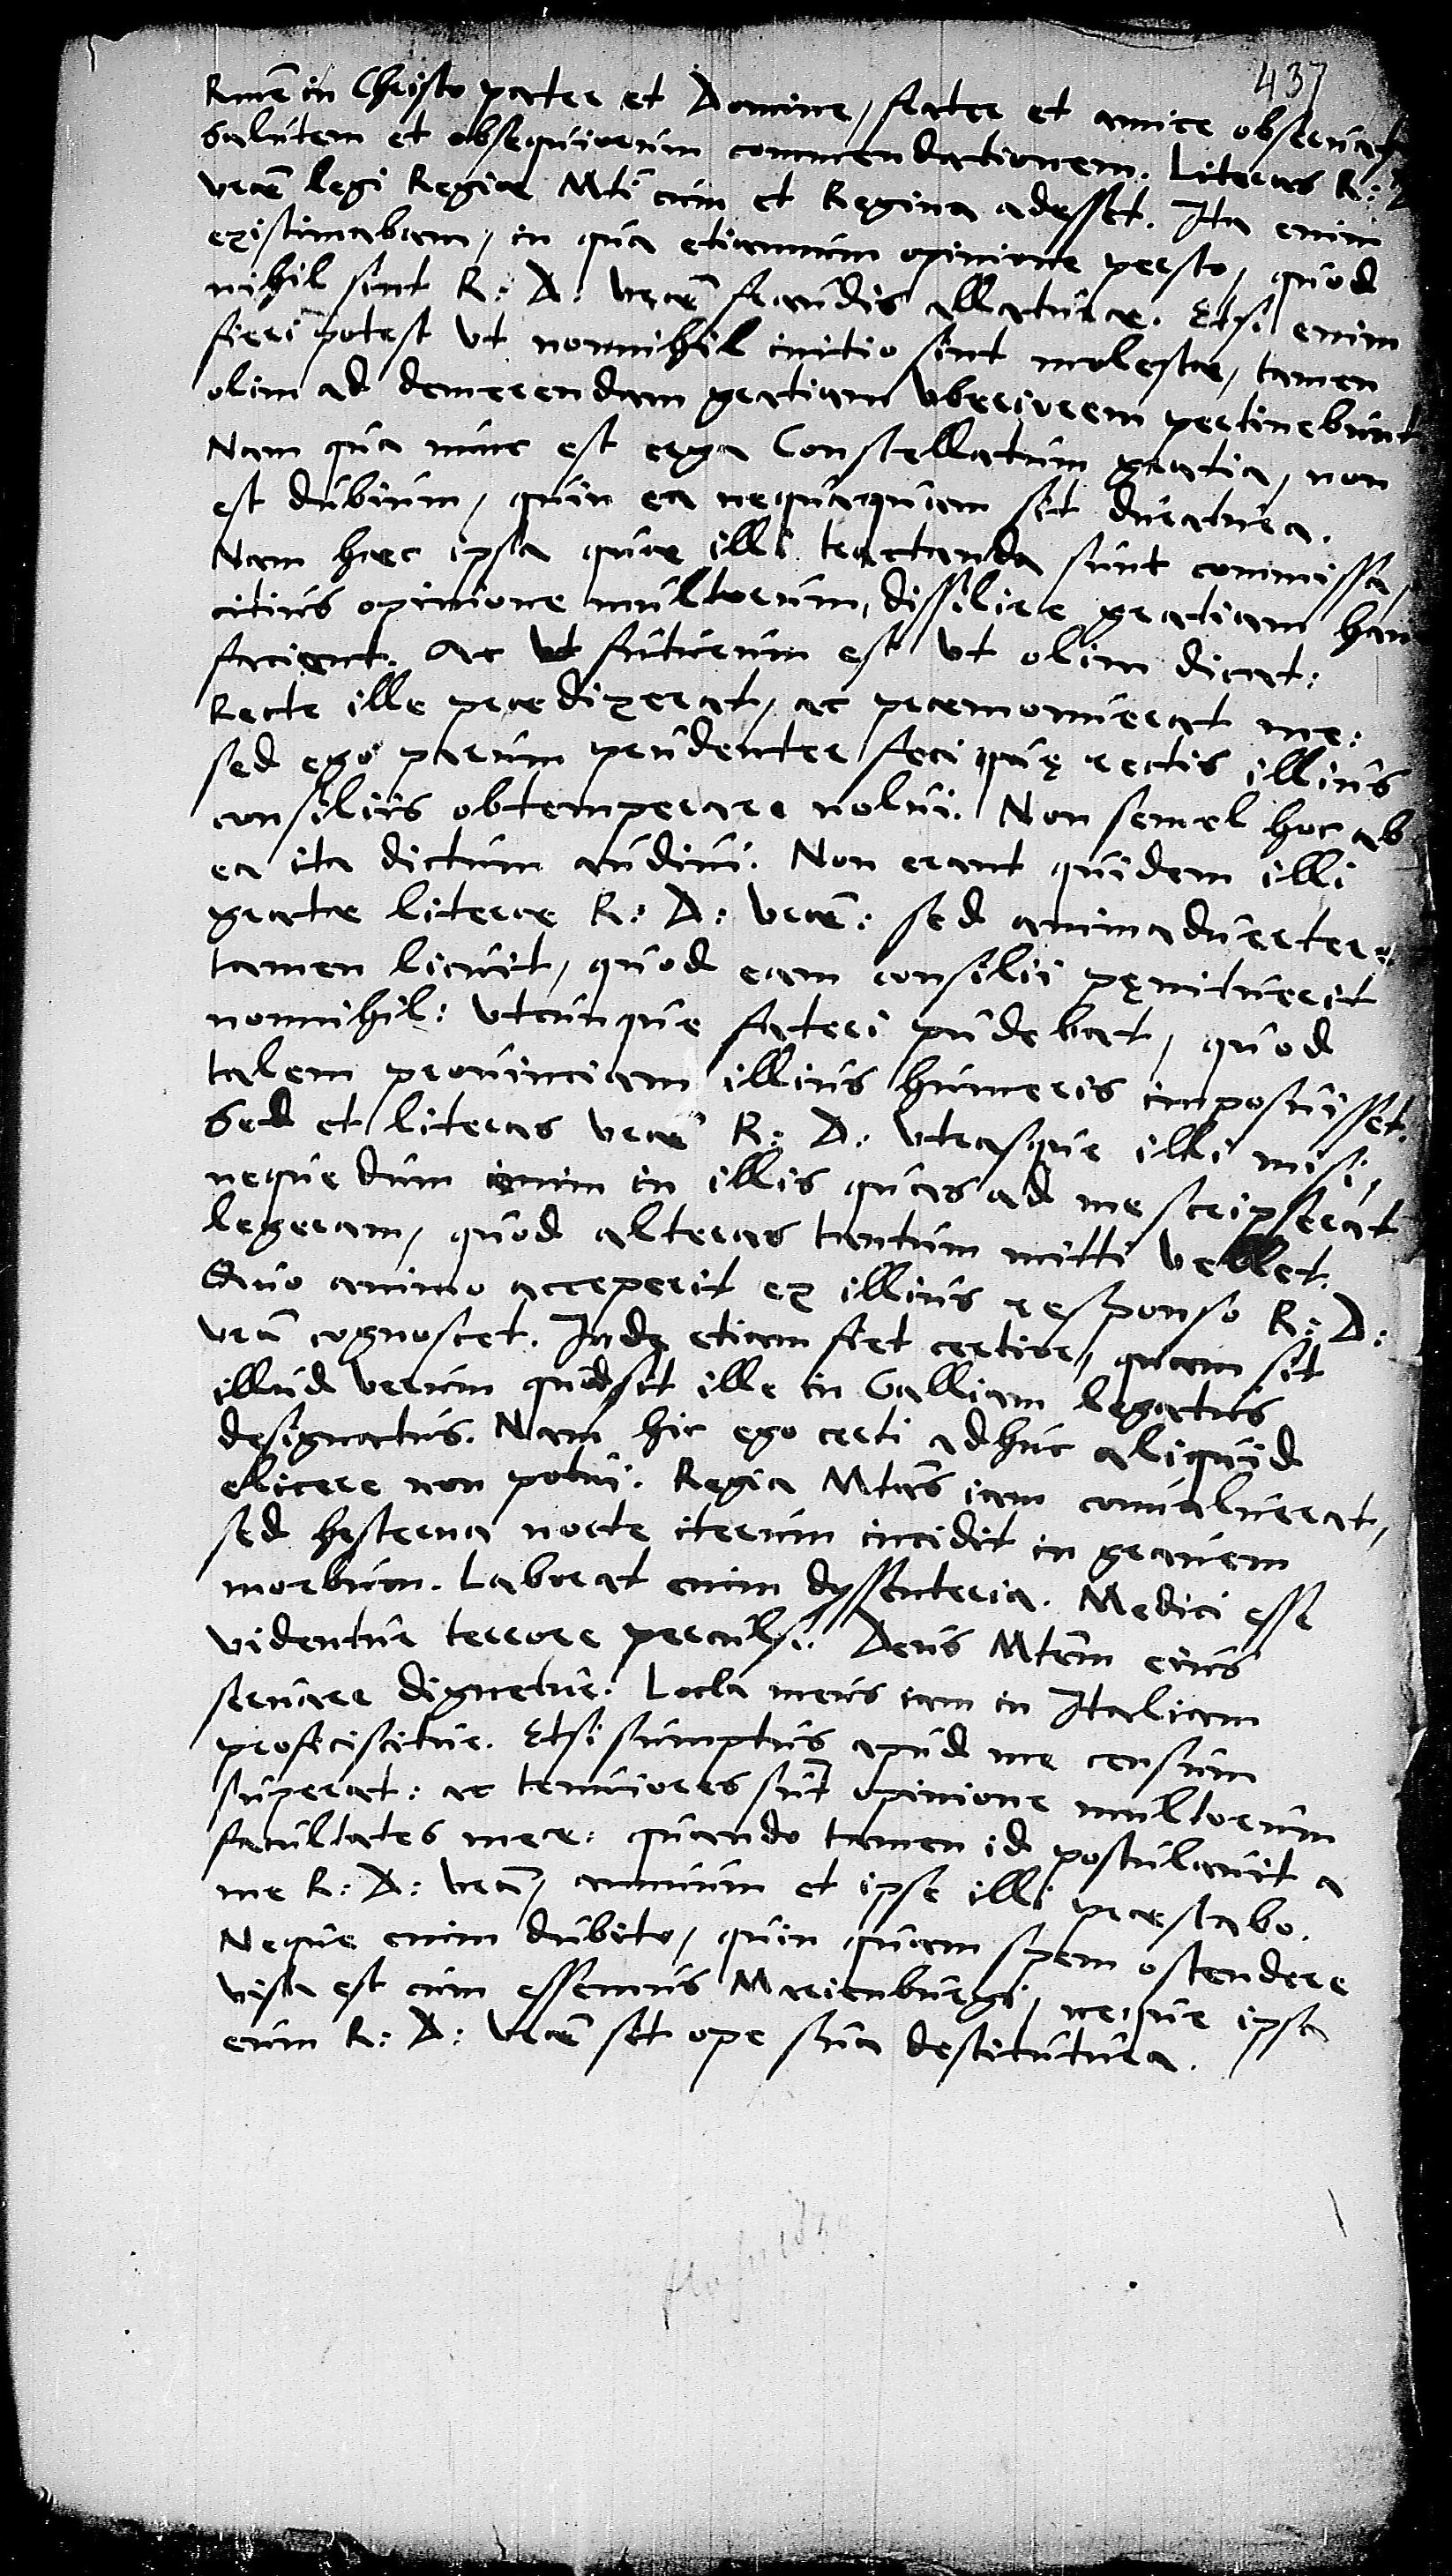 437
Rme in Christo pater et Domine, frater et amice obserua
Salutem et obsequiorum commendationem. Literas R:
vrae legi Regiae Mti cum et Regina adesset. Ita enim
existimabam, in qua etiamnum opinione persto, quod
nihil sint R: D: vrae fraudis allaturae. Etsi enim
fieri potest vt nonnihil initio sint molestae, tamen
olim ad demerendam gratiam vberiorem pertinebunt
Nam qua nunc est erga Constellatum gratia, non
est dubium, quin ea nequaquam sit duratura.
Nam haec ipsa quae illi tractanda sunt commissa,
citius opinione multorum, dissilire gratiam han
facient. Ac vt futurum est vt olim dicat:
Recte ille praedixerat, ac praemonuerat me:
sed ego parum prudenter feci quę rectis illius
consiliis obtemperare nolui. Non semel hoc ab
ea ita dictum audiui. Non erant quidem illi
gratae literae R: D: vrae: sed animaduerter
tamen licuit, quod eam consilii pęnituerit
nonnihil: vtcunque fateri pudebat, quod
talem prouinciam illius humeris imposuisset.
Sed et literas vrae R: D: vtrasque illi misi,
neque dum enim in illis quas ad me scripserat
legeram, quod alteras tantum mitti vellet.
Quo animo acceperit ex illius responso R: D:
vra cognoscet. Indę etiam fiet certior, quam sit
illud verum quod sit ille in Galliam legatus
designatus. Nam hic ego certi adhuc aliquid
elicere non potui. Regia Mtas iam conualuerat,
sed hesterna nocte iterum incidit in grauem
morbum. Laborat enim dyssenteria. Medici esse
videntur terrore perculsi. Deus Mtem eius
seruare dignetur. Locka meus iam in Italiam
proficiscitur. Etsi sumptus apud me censum
superat: ac tenuiores sunt opinione multorum
facultates meae: quando tamen id postulauit a
me R: D: vra, annuum et ipse illi praestabo.
Neque enim dubito, quin quam spem ostendere
visa est cum essemus Marienburgi, neque ipsa
eum R: D: vrae sit ope sua destitutura.